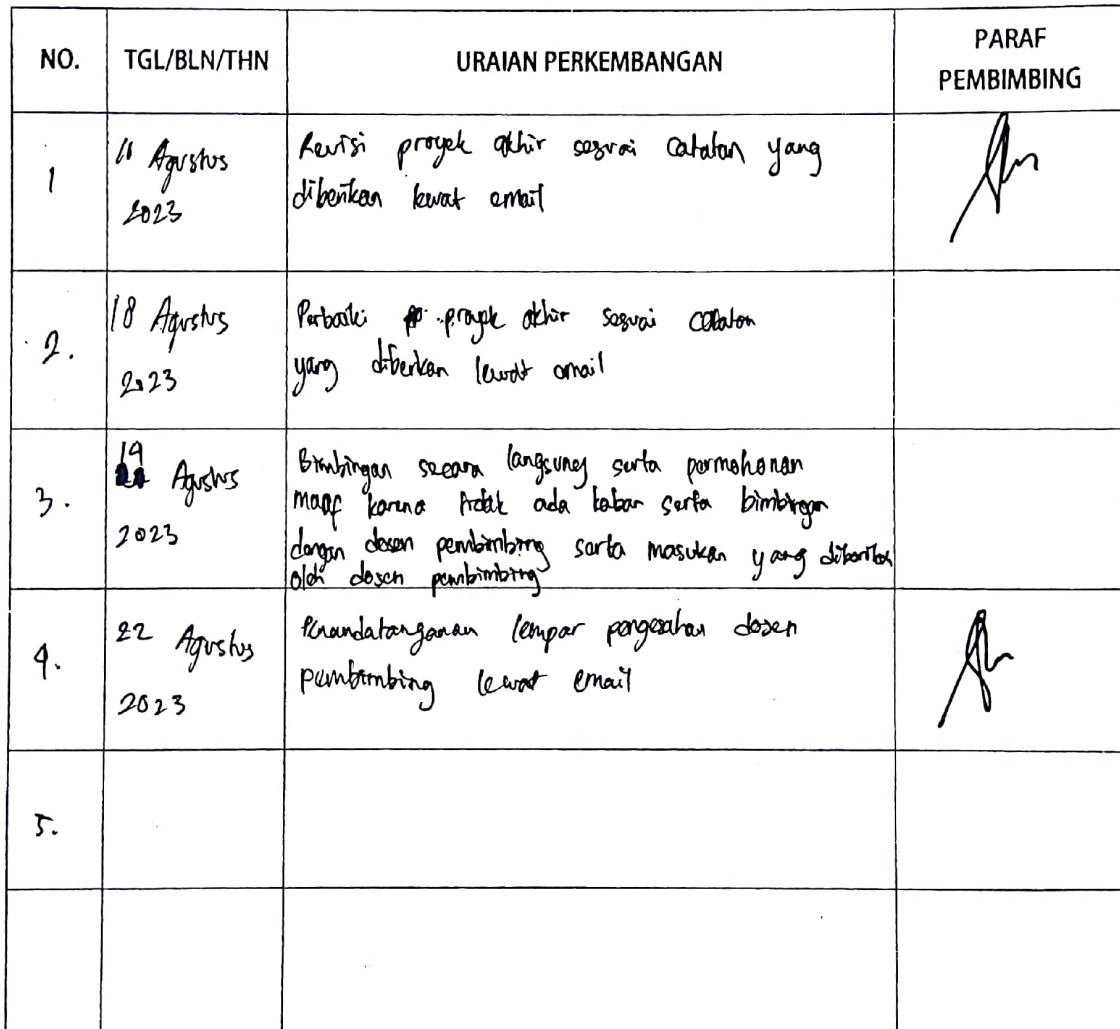 NO. TGL/BLN/THN URAIAN PERKEMBANGAN PARAF
PEMBIMBING
1 11 Agustus Revisi proyek akhir sesuai catatan yang
2023 diberikan lewat email
2. 18 Agustus Perbaiki proyek akhir sesuai catatan
2023 yang diberikan lewat email
3. 19 Agustus Bimbingan secara langsung serta permohonan
2023 maaf karena tidak ada kabar serta bimbingan
dengan dosen pembimbing serta masukan yang diberikan
oleh dosen pembimbing
4. 22 Agustus Penandatanganan lempar pengesahan dosen
2023 pembimbing lewat email
5.